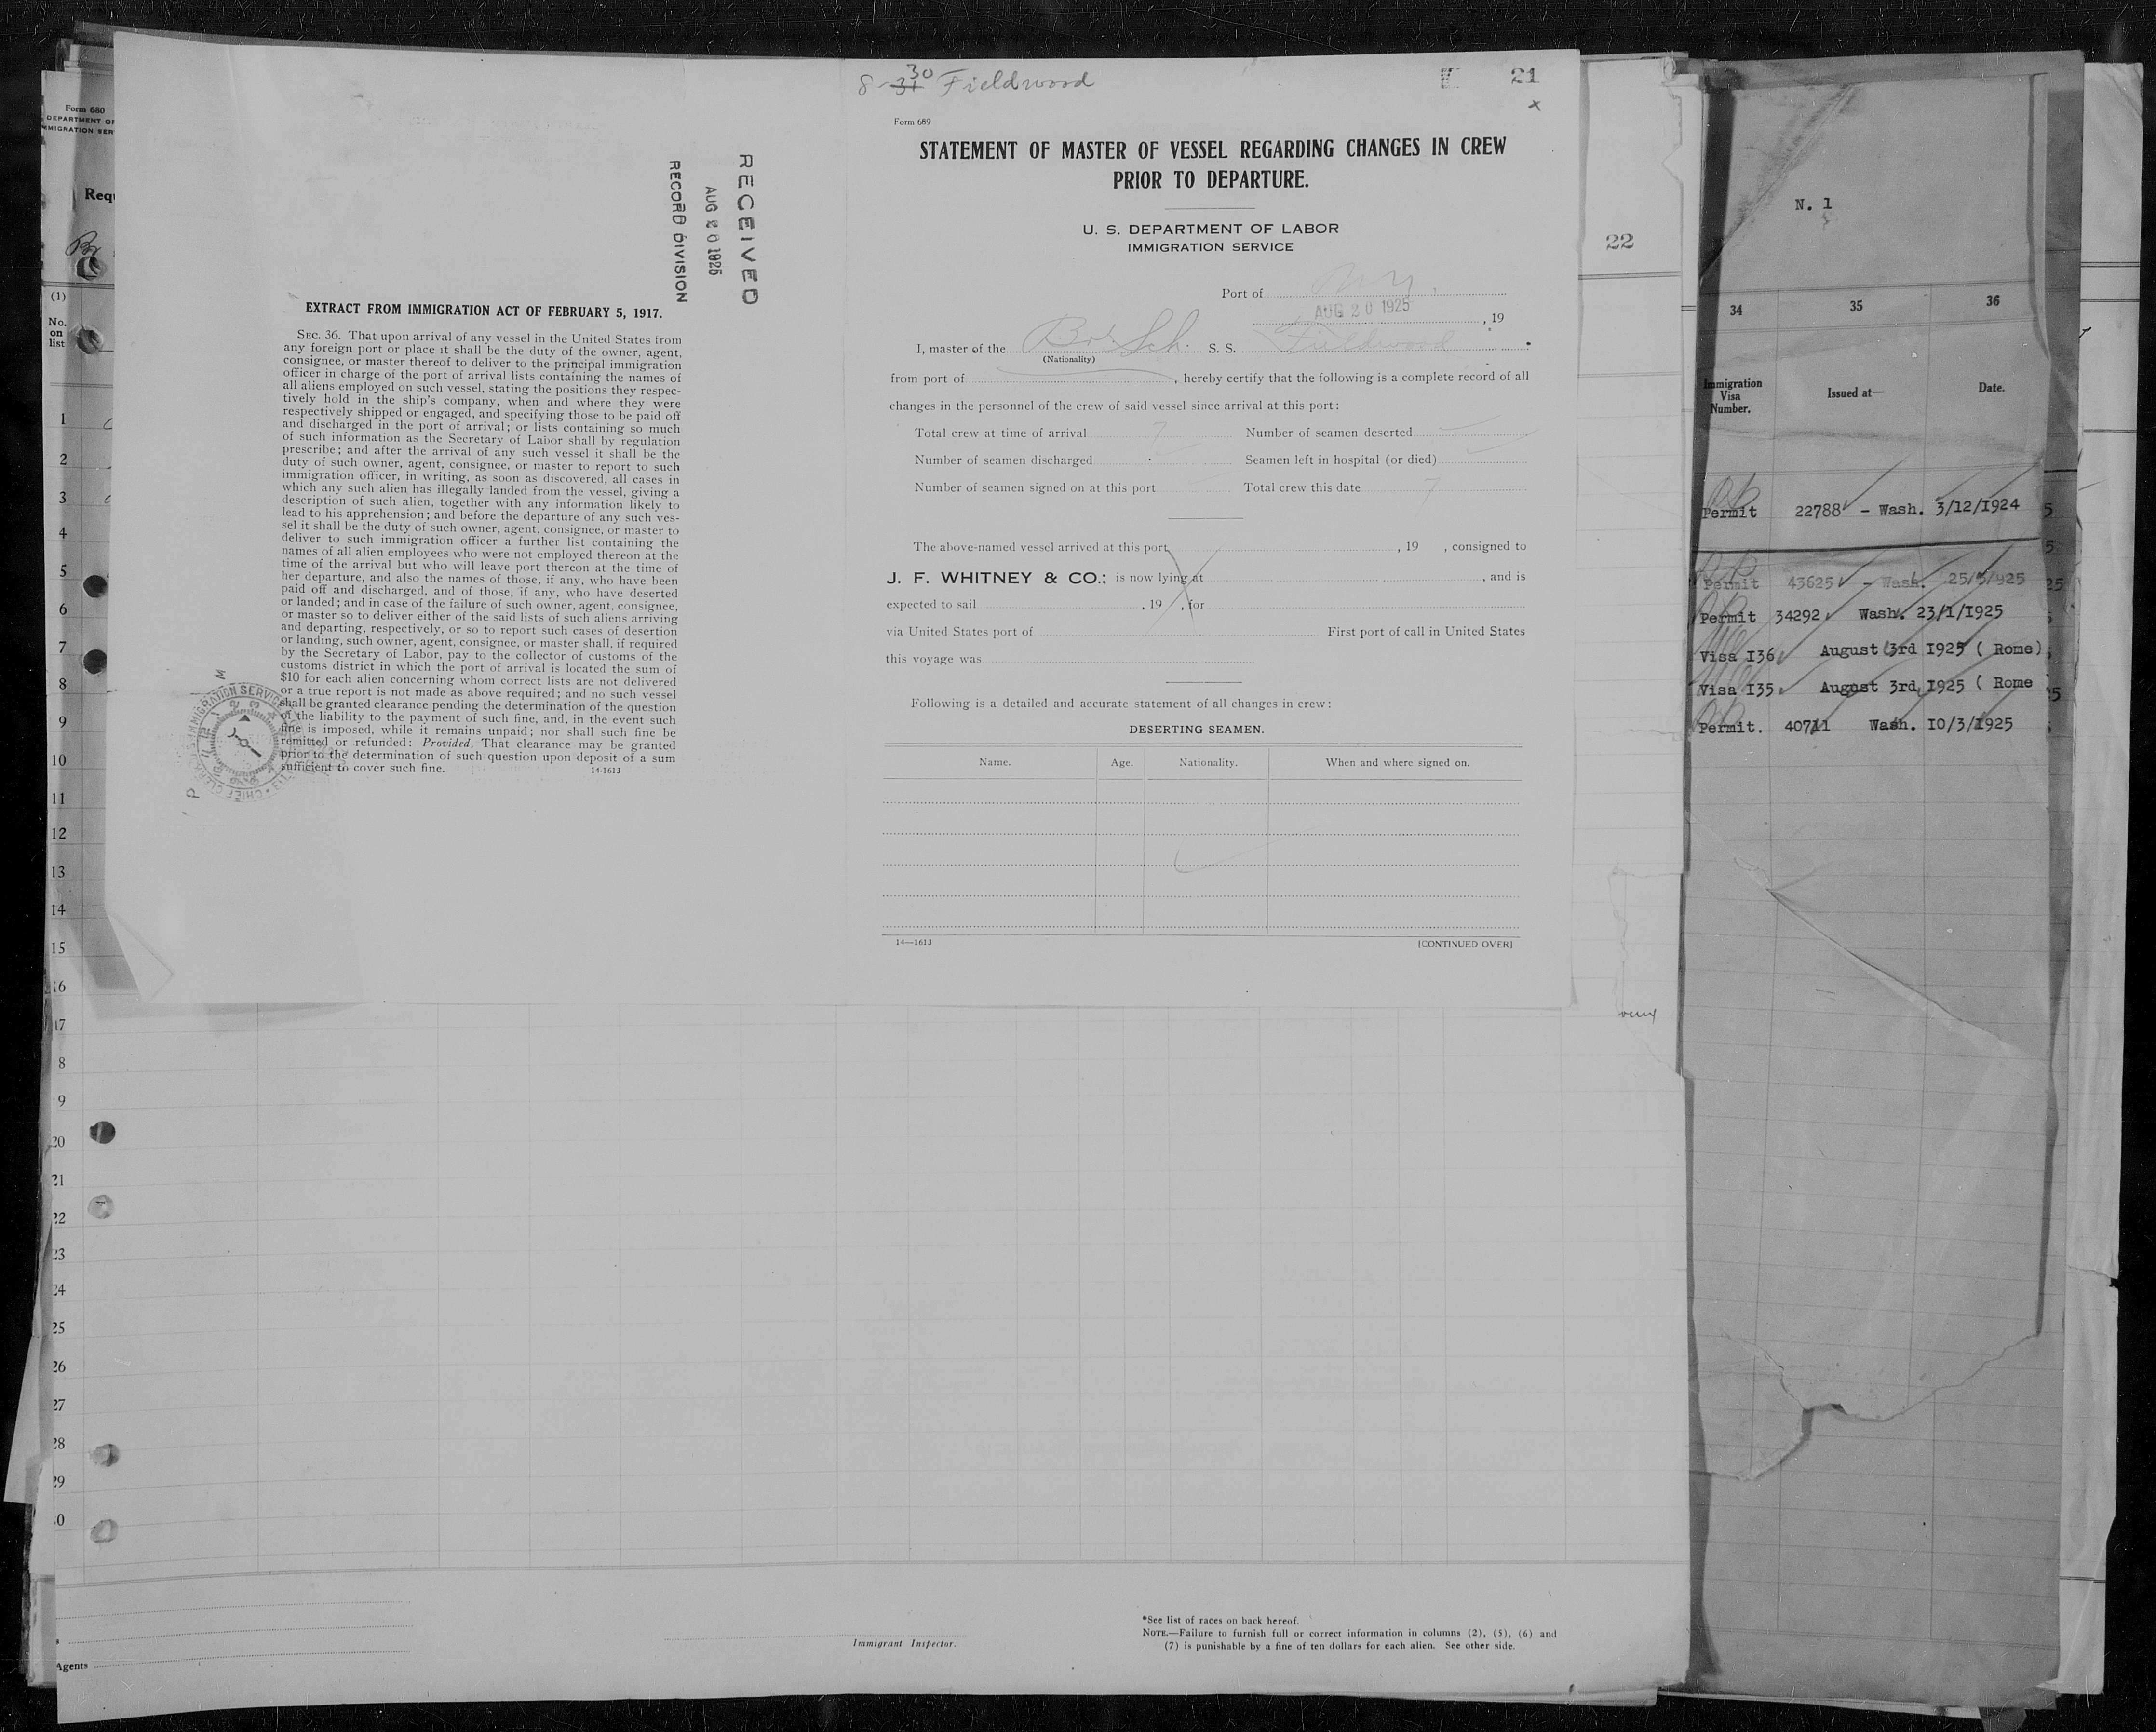 8-31 30 Fieldwood
21
x
Form 689
STATEMENT OF MASTER OF VESSEL REGARDING CHANGES IN CREW
PRIOR TO DEPARTURE.
U. S. DEPARTMENT OF LABOR
IMMIGRATION SERVICE
Port of N Y
AUG 20 1925, 19
I, master of the Br. Sch. S. S. Fieldwood
(Nationality)
from port of , hereby certify that the following is a complete record of all
changes in the personnel of the crew of said vessel since arrival at this port:
Total crew at time of arrival 7 Number of seamen deserted
Number of seamen discharged Seamen left in hospital (or died)
Number of seamen signed on at this port Total crew this date 7
The above-named vessel arrived at this port , 19 , consigned to
J. F. WHITNEY & CO.; is now lying at , and is
expected to sail , 19 , for
via United States port of First port of call in United States
this voyage was
Following is a detailed and accurate statement of all changes in crew:
DESERTING SEAMEN.
Name. Age. Nationality. When and where signed on.
14—1613 [CONTINUED OVER]
RECEIVED
AUG 20 1925
RECORD DIVISION
EXTRACT FROM IMMIGRATION ACT OF FEBRUARY 5, 1917.
SEC. 36. That upon arrival of any vessel in the United States from
any foreign port or place it shall be the duty of the owner, agent,
consignee, or master thereof to deliver to the principal immigration
officer in charge of the port of arrival lists containing the names of
all aliens employed on such vessel, stating the positions they respec-
tively hold in the ship's company, when and where they were
respectively shipped or engaged, and specifying those to be paid off
and discharged in the port of arrival; or lists containing so much
of such information as the Secretary of Labor shall by regulation
prescribe; and after the arrival of any such vessel it shall be the
duty of such owner, agent, consignee, or master to report to such
immigration officer, in writing, as soon as discovered, all cases in
which any such alien has illegally landed from the vessel, giving a
description of such alien, together with any information likely to
lead to his apprehension; and before the departure of any such ves-
sel it shall be the duty of such owner, agent, consignee, or master to
deliver to such immigration officer a further list containing the
names of all alien employees who were not employed thereon at the
time of the arrival but who will leave port thereon at the time of
her departure, and also the names of those, if any, who have been
paid off and discharged, and of those, if any, who have deserted
or landed; and in case of the failure of such owner, agent, consignee,
or master so to deliver either of the said lists of such aliens arriving
and departing, respectively, or so to report such cases of desertion
or landing, such owner, agent, consignee, or master shall, if required
by the Secretary of Labor, pay to the collector of customs of the
customs district in which the port of arrival is located the sum of
$10 for each alien concerning whom correct lists are not delivered
or a true report is not made as above required; and no such vessel
shall be granted clearance pending the determination of the question
of the liability to the payment of such fine, and, in the event such
fine is imposed, while it remains unpaid; nor shall such fine be
remitted or refunded: Provided, That clearance may be granted
prior to the determination of such question upon deposit of a sum
sufficient to cover such fine. 14-1613
Form 680
DEPARTMENT OF
MMIGRATION SER
Requ
Br
(1)
No.
on
list
1
2
3
4
5
6
7
8
9
10
11
12
13
14
15
16
17
8
9
20
21
22
23
24
25
26
27
28
29
0
Agents
Immigrant Inspector.
*See list of races on back hereof.
NOTE.—Failure to furnish full or correct information in columns (2), (5), (6) and
(7) is punishable by a fine of ten dollars for each alien. See other side.
22
N. 1
34 35 36
Immigration
Visa
Number.
Issued at—
Date.
Permit 22788 - Wash. 3/12/1924
Permit 43625 - Wash. 25/5/925
Permit 34292 Wash. 23/1/1925
Visa I36 August 3rd 1925 ( Rome)
Visa I35 August 3rd 1925 ( Rome
Permit. 40711 Wash. 10/3/1925